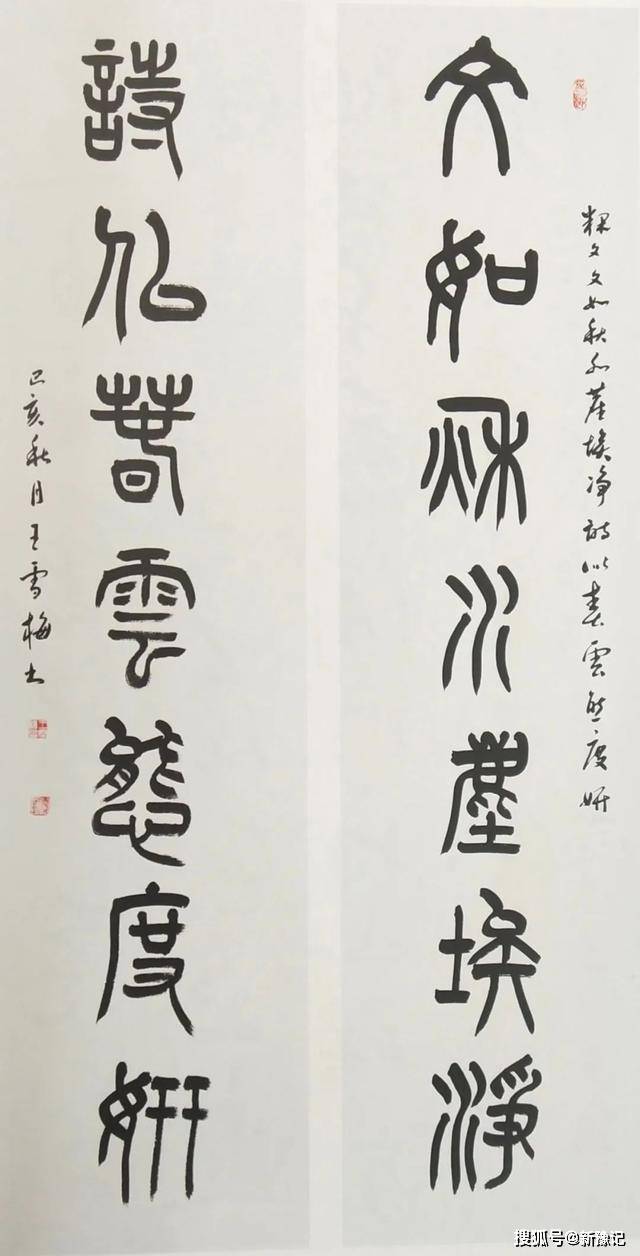 释文文如秋水塵埃净詩似春雲態度妍
文如秌水塵埃淨
詩似春雲態度妍
己亥秋月王雪梅书
搜狐号@新豫记